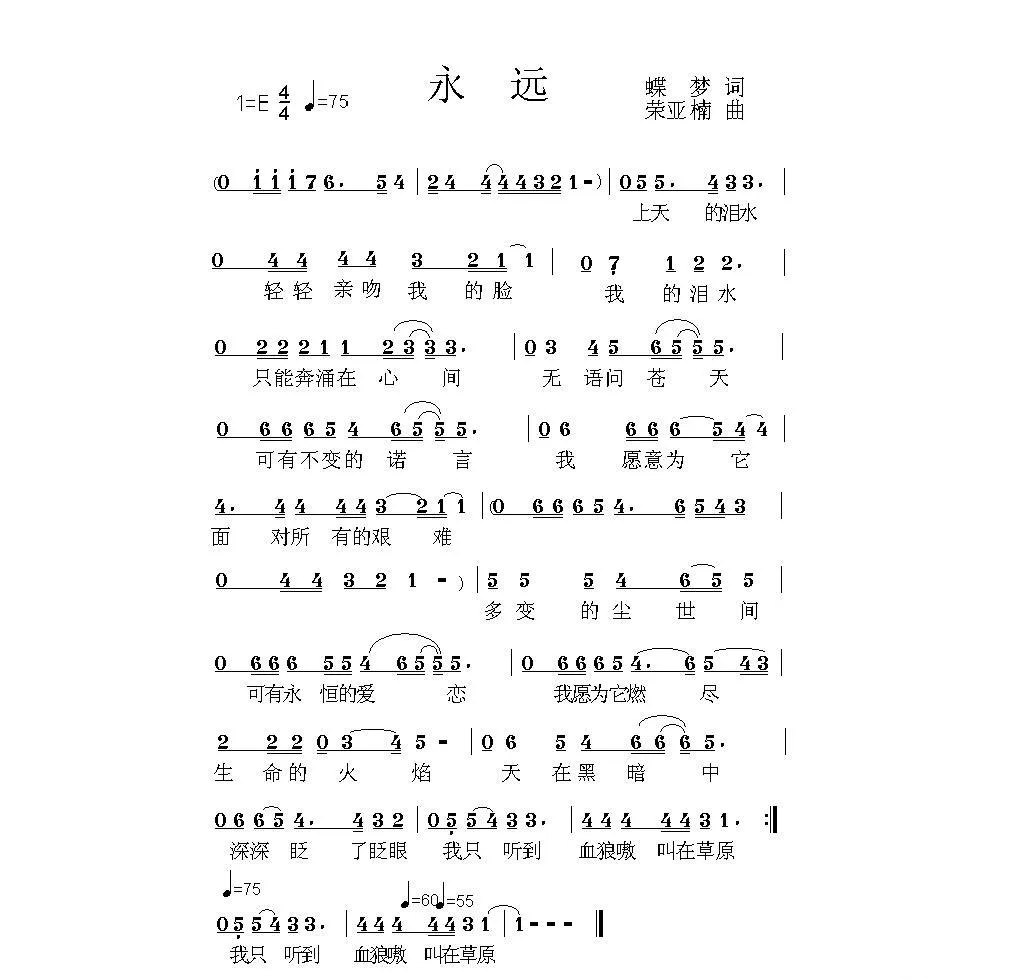 永 远
1=E 4/4 ♩=75
蝶 梦 词
荣亚楠 曲
(0 i i i 7 6. 5 4 | 2 4 4 4 4 3 2 1 - ) | 0 5 5. 4 3 3. |
上天 的泪水
0 4 4 4 4 3 2 1 1 | 0 7 1 2 2. |
轻轻 亲吻 我 的脸 我 的泪水
0 2 2 2 1 1 2 3 3 3. | 0 3 4 5 6 5 5 5. |
只能奔涌在 心 间 无 语问 苍 天
0 6 6 6 5 4 6 5 5 5. | 0 6 6 6 6 5 4 4 |
可有不变的 诺 言 我 愿意为 它
4. 4 4 4 4 3 2 1 1 | (0 6 6 6 5 4. 6 5 4 3 |
面 对所 有的艰 难
0 4 4 3 2 1 - ) | 5 5 5 4 6 5 5 |
多变 的尘 世 间
0 6 6 6 5 5 4 6 5 5 5. | 0 6 6 6 5 4. 6 5 4 3 |
可有永 恒的爱 恋 我愿为它燃 尽
2 2 2 0 3 4 5 - | 0 6 5 4 6 6 6 5. |
生 命的 火 焰 天 在黑 暗 中
0 6 6 5 4. 4 3 2 | 0 5 5 4 3 3. | 4 4 4 4 4 3 1. :‖
深深 眨 了眨眼 我只 听到 血狼嗷 叫在草原
♩=75 ♩=60 ♩=55
0 5 5 4 3 3. | 4 4 4 4 4 3 1 | 1 - - - ‖
我只 听到 血狼嗷 叫在草原